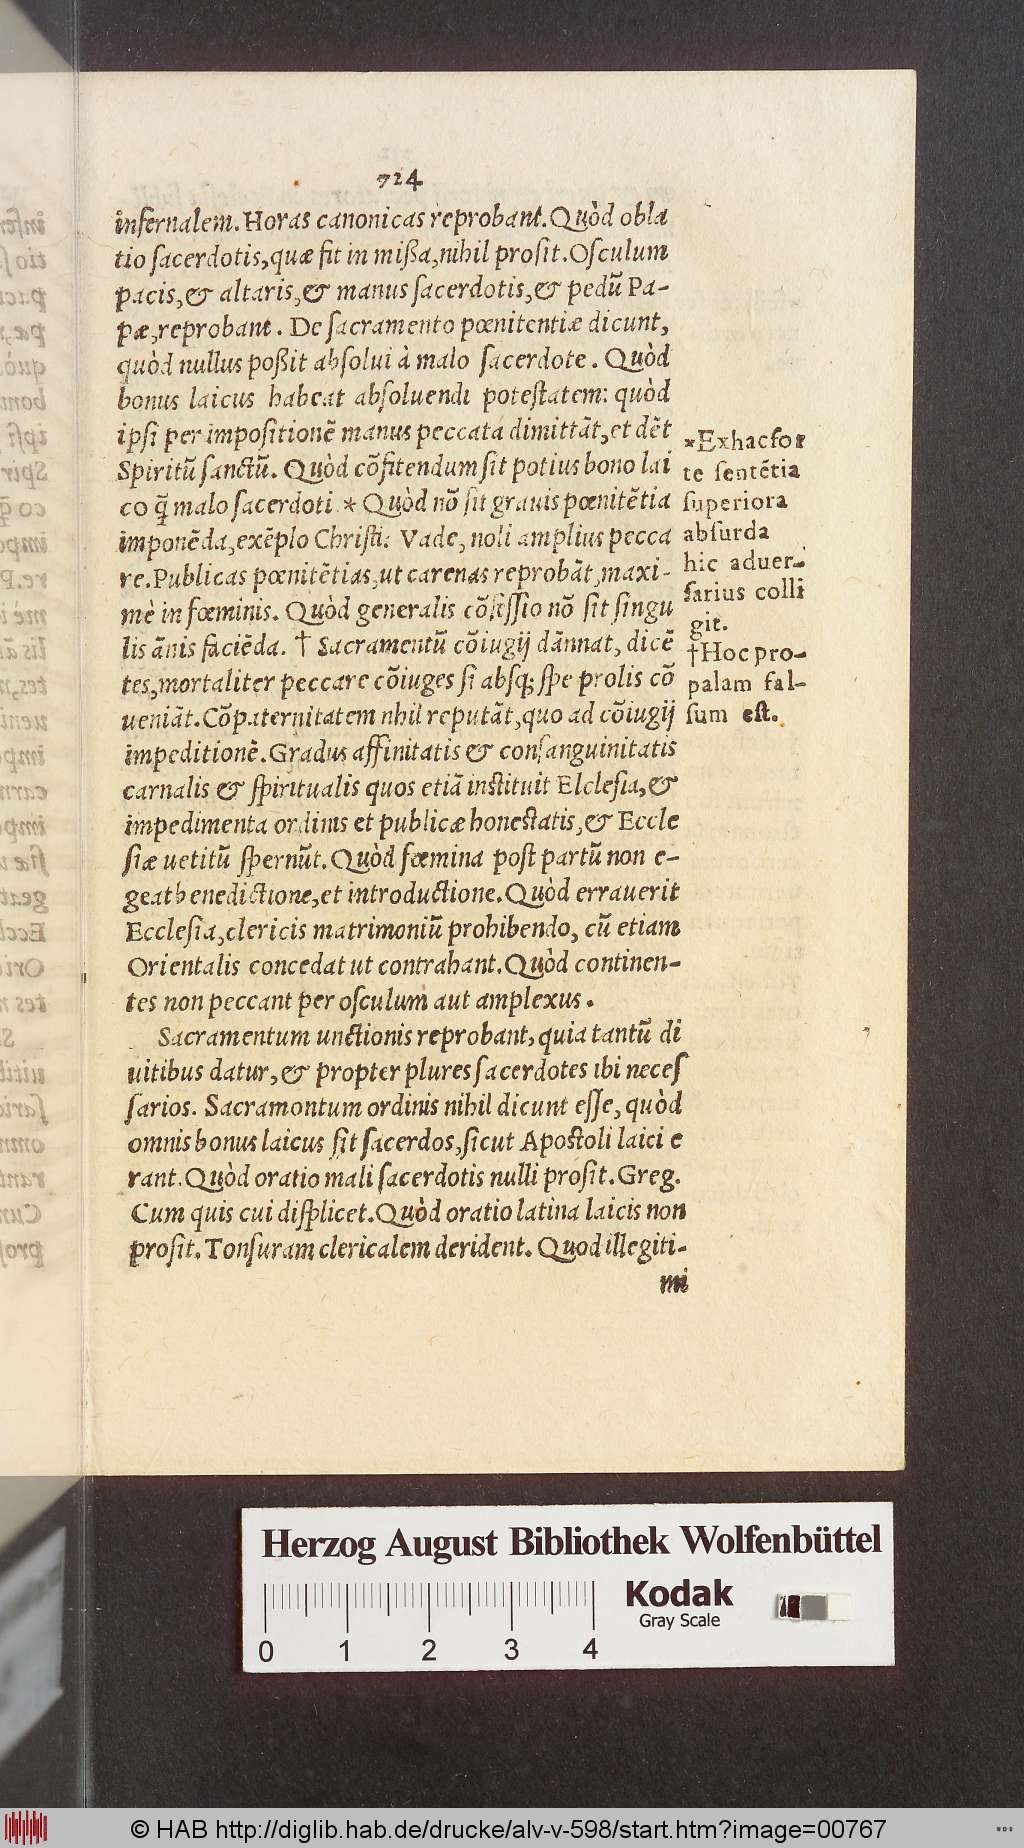 724
infernalem. Horas canonicas reprobant. Quòd obla
tio sacerdotis, quæ fit in mißa, nihil prosit. Osculum
pacis, & altaris, & manus sacerdotis, & pedũ Pa-
pæ, reprobant. De sacramento pœnitentiæ dicunt,
quòd nullus poßit absolui à malo sacerdote. Quòd
bonus laicus habeat absoluendi potestatem: quòd
ipsi per impositionẽ manus peccata dimittãt, et dẽt
Spiritũ sanctũ. Quòd cõfitendum sit potius bono lai
co q̃ malo sacerdoti * Quòd nõ sit grauis pœnitẽtia
imponẽda, exẽplo Christi: Vade, noli amplius pecca
re. Publicas pœnitẽtias, ut carenas reprobãt, maxi-
mè in fœminis. Quòd generalis cõfessio nõ sit singu
lis ãnis faciẽda. † Sacramentũ cõiugij dãnnat, dicẽ
tes, mortaliter peccare cõiuges si absq; spe prolis cõ
ueniãt. Cõpaternitatem nhil reputãt, quo ad cõiugij
impeditionẽ. Gradus affinitatis & consanguinitatis
carnalis & spiritualis quos etiã instituit Elclesia, &
impedimenta ordinis et publicæ honestatis, & Eccle
siæ uetitũ spernũt. Quòd fœmina post partũ non e-
geat benedictione, et introductione. Quòd errauerit
Ecclesia, clericis matrimoniũ prohibendo, cũ etiam
Orientalis concedat ut contrahant. Quòd continen-
tes non peccant per osculum aut amplexus.
Sacramentum unctionis reprobant, quia tantũ di
uitibus datur, & propter plures sacerdotes ibi neces
sarios. Sacramontum ordinis nihil dicunt esse, quòd
omnis bonus laicus sit sacerdos, sicut Apostoli laici e
rant. Quòd oratio mali sacerdotis nulli prosit. Greg.
Cum quis cui displicet. Quòd oratio latina laicis non
prosit. Tonsuram clericalem derident. Quod illegiti-
mi
*Ex hac for
te sentẽtia
superiora
absurda
hic aduer-
sarius colli
git.
†Hoc pro-
palam fal-
sum est.
Herzog August Bibliothek Wolfenbüttel
Kodak
Gray Scale
0 1 2 3 4
© HAB http://diglib.hab.de/drucke/alv-v-598/start.htm?image=00767